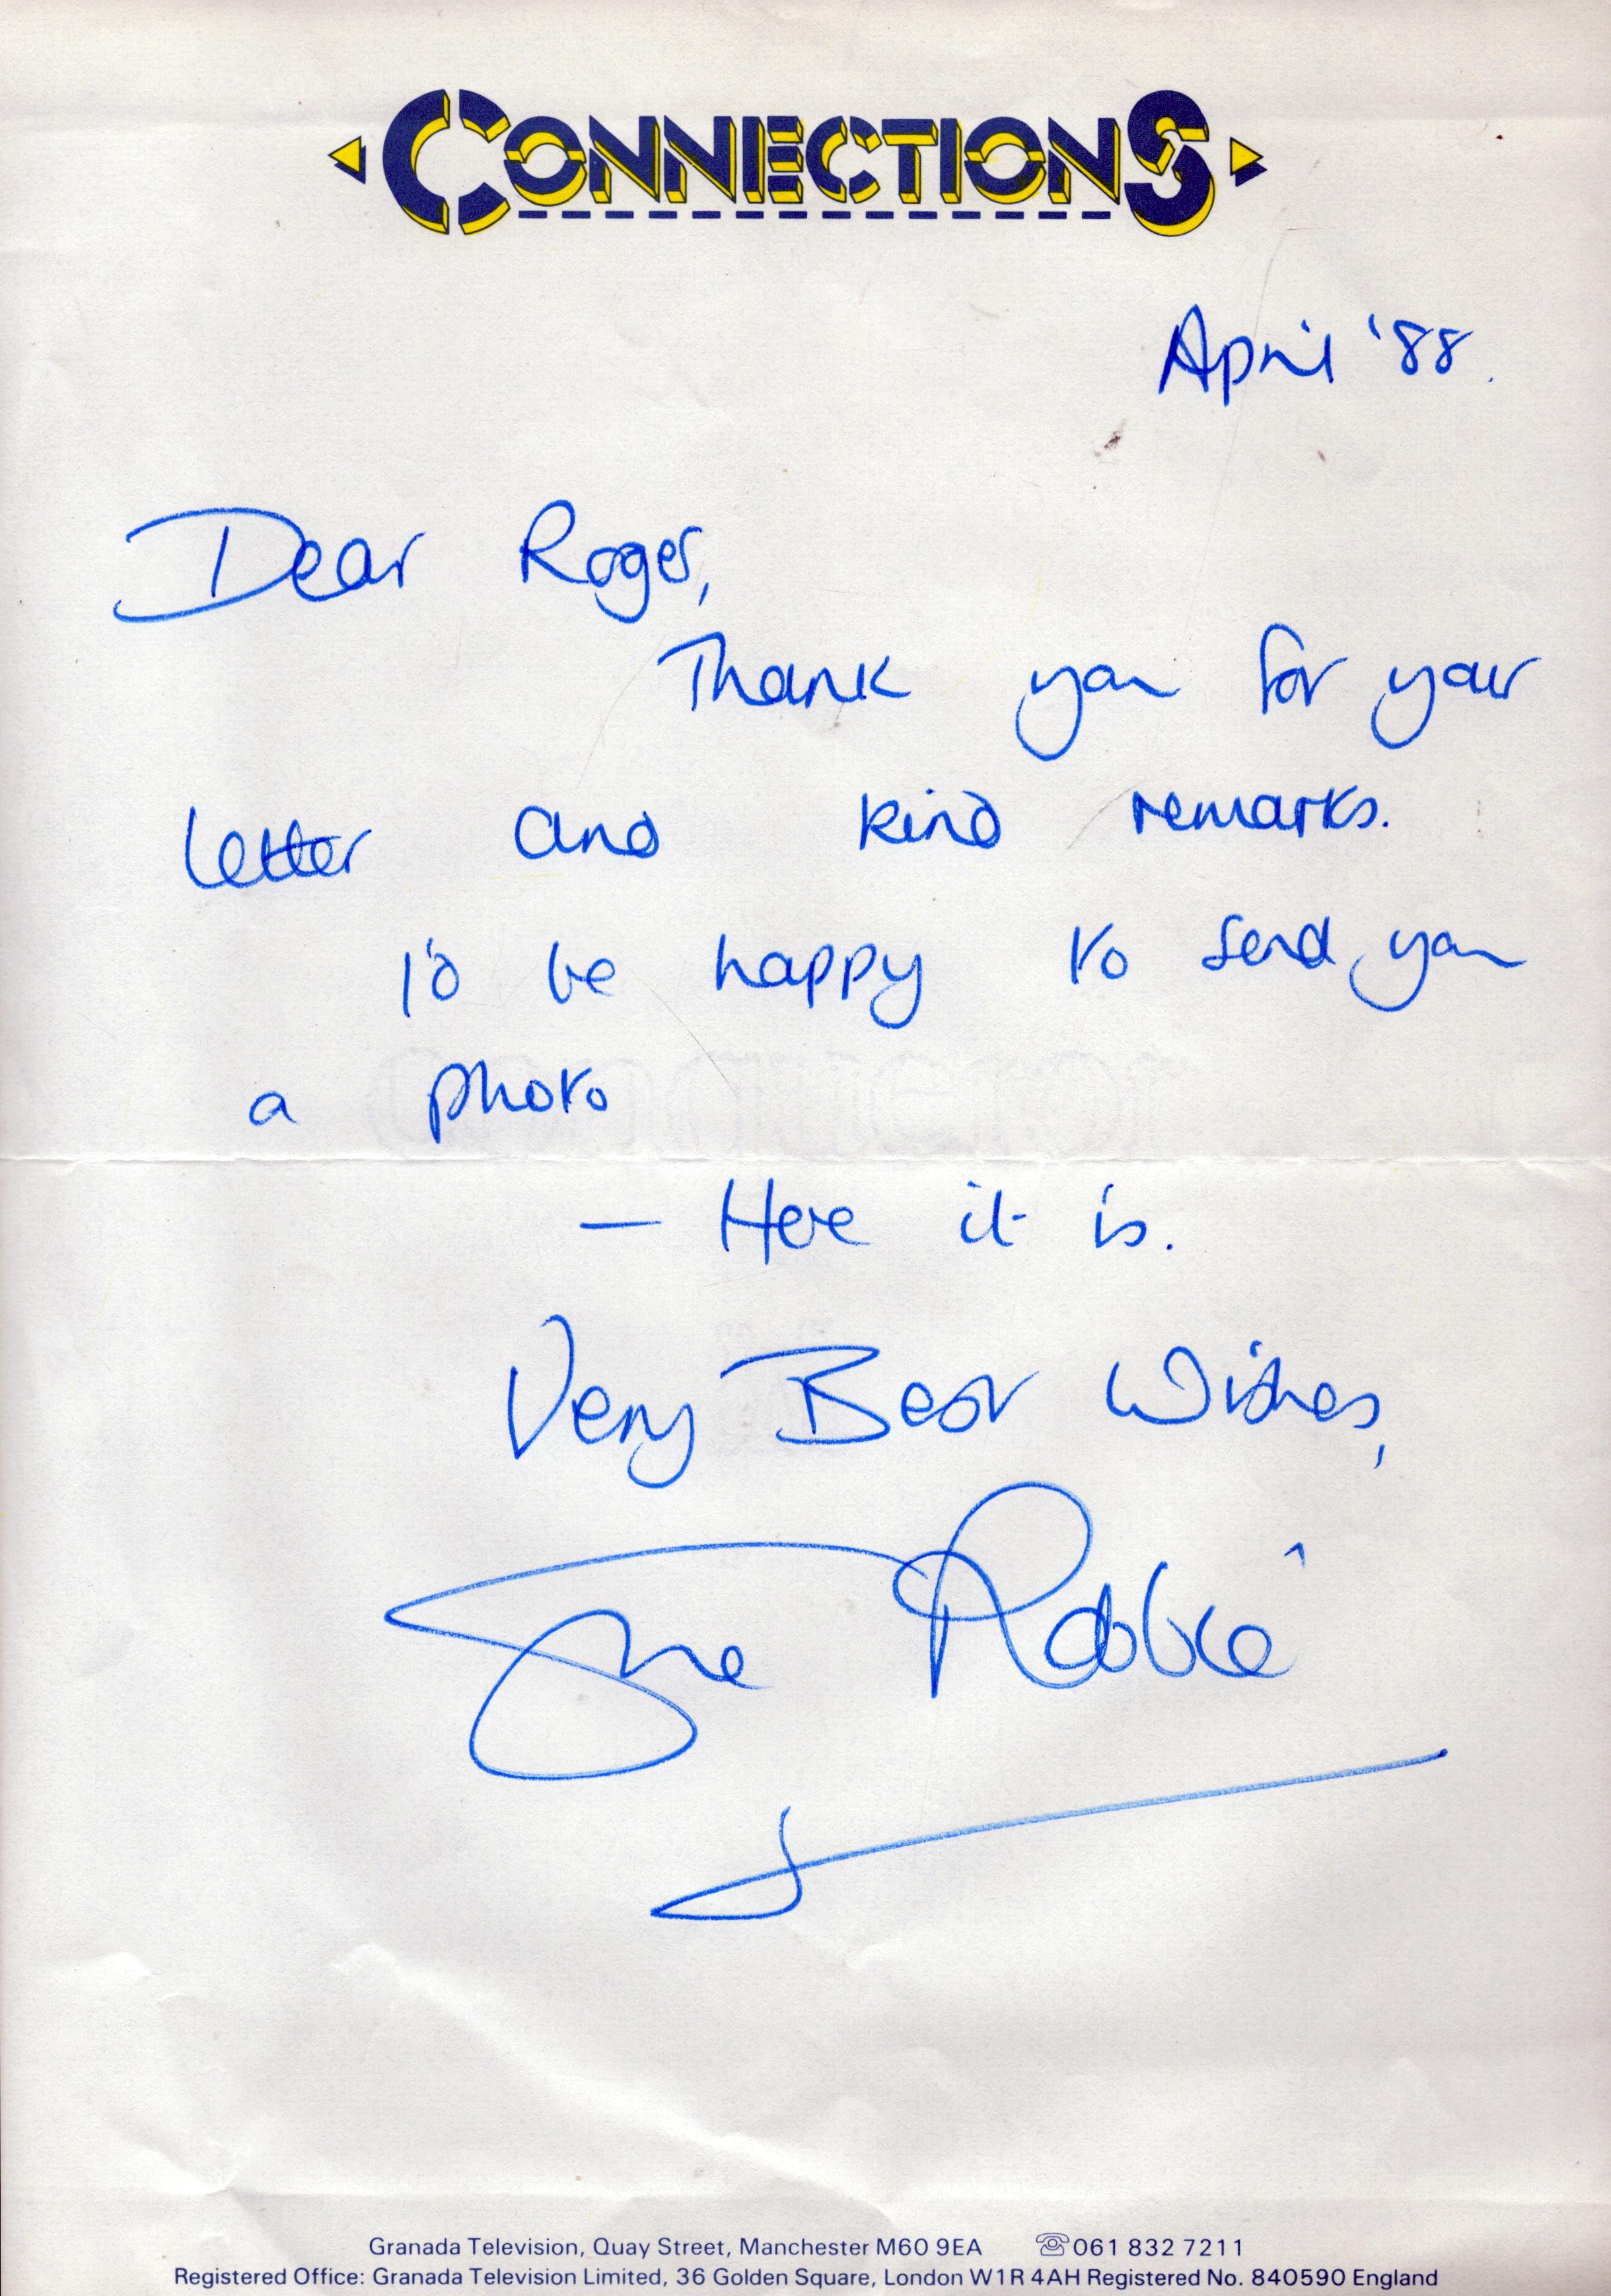 CONNECTIONS
April '88.
Dear Roger,
Thank you for your
letter and kind remarks.
I'd be happy to send you
a photo
— Here it is.
Very Best Wishes,
Sue Robbie
Granada Television, Quay Street, Manchester M60 9EA ☏ 061 832 7211
Registered Office: Granada Television Limited, 36 Golden Square, London W1R 4AH Registered No. 840590 England